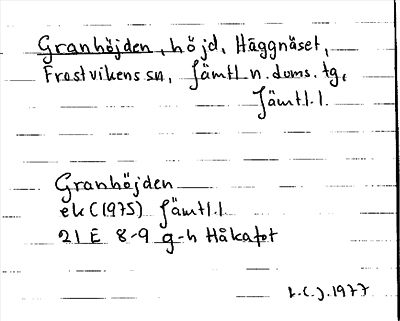 Granhöjden, höjd, Häggnäset,
Frostvikens sn, Jämtl. n. doms. tg,
Jämtl. l.
Granhöjden
ek (1975) Jämtl. l
21 E 8-9 g-h Håkafot
L.C.J. 1977